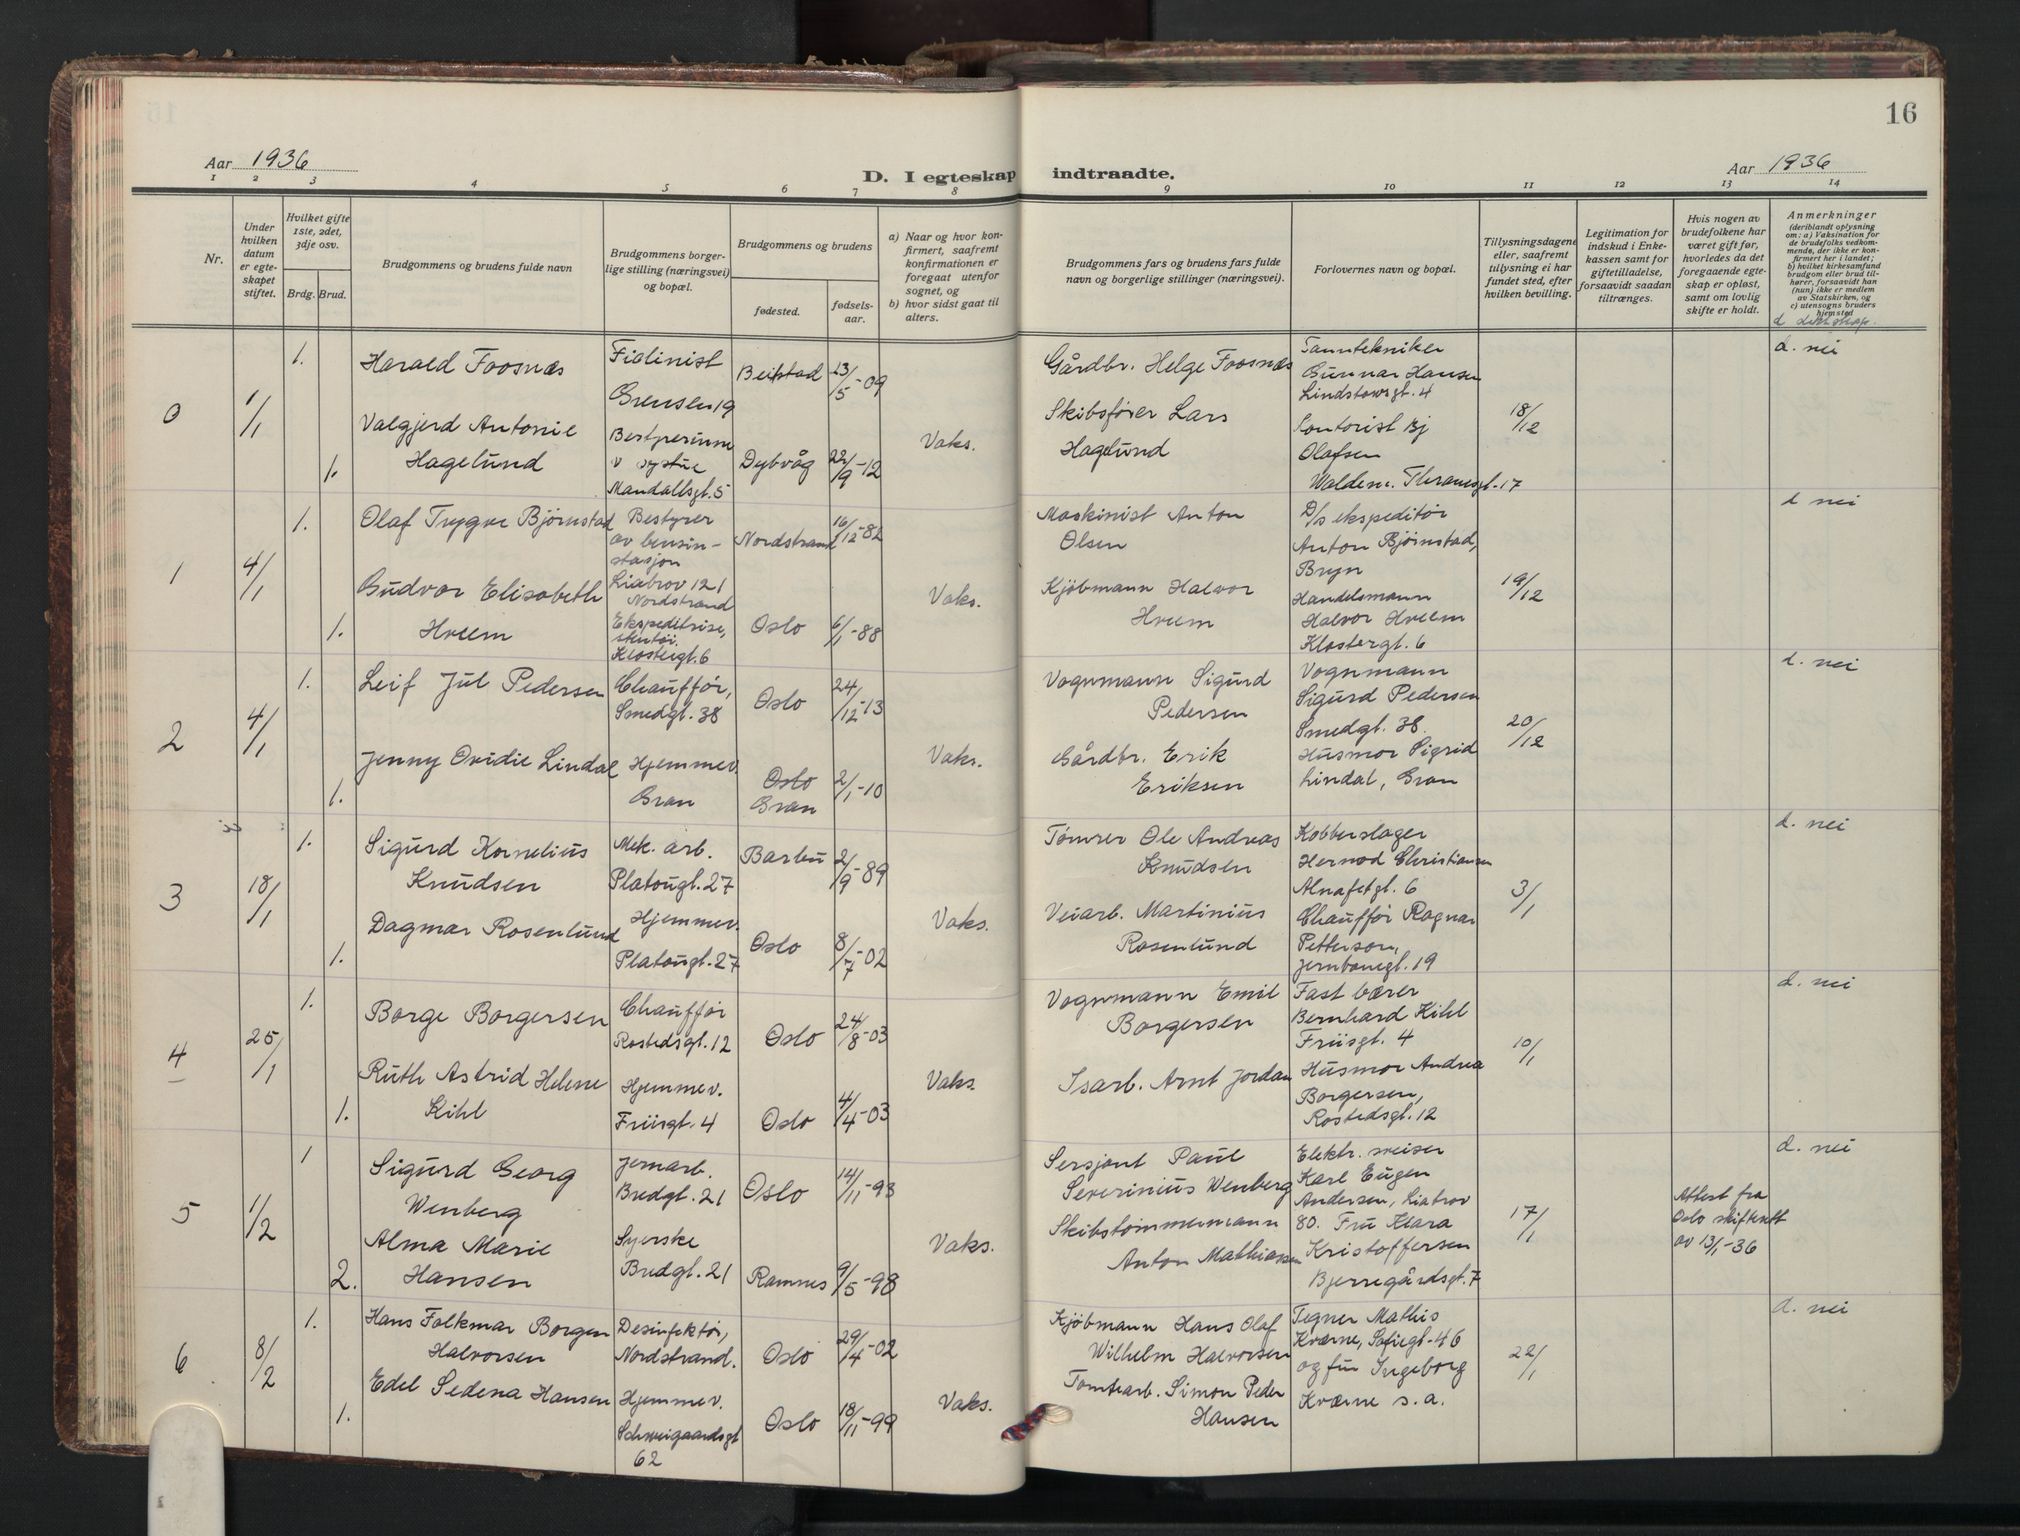 16
Aar 1936
D. I egteskap indtraadte.
Aar 1936
1 2 3 4 5 6 7 8 9 10 11 12 13 14
Nr.
Under hvilken datum er egteskapet stiftet.
Hvilket gifte 1ste, 2det, 3dje osv.
Brdg. Brud.
Brudgommens og brudens fulde navn
Brudgommens borgerlige stilling (næringsvei) og bopæl.
Brudgommens og brudens
fødested.
fødselsaar.
a) Naar og hvor konfirmert, saafremt konfirmationen er foregaat utenfor sognet, og
b) hvor sidst gaat til alters.
Brudgommens fars og brudens fars fulde navn og borgerlige stillinger (næringsvei).
Forlovernes navn og bopæl.
Tillysningsdagene eller, saafremt tillysning ei har fundet sted, efter hvilken bevilling.
Legitimation for indskud i Enkekassen samt for giftetilladelse, forsaavidt saadan tiltrænges.
Hvis nogen av brudefolkene har været gift før, hvorledes da det foregaaende egteskap er opløst, samt om lovlig skifte er holdt.
Anmerkninger
(deriblandt oplysning om: a) Vaksination for de brudefolks vedkommende, der ikke er konfirmert her i landet; b) hvilket kirkesamfund brudgom eller brud tilhører, forsaavidt han (hun) ikke er medlem av Statskirken, og c) utensogns bruders hjemsted
0
1/1
1.
Harald Foosnæs
Fiolinist
Grensen 19
Beitstad
23/5-09
Gårdbr. Helge Foosnæs
Tanntekniker
Gunnar Hansen
Lindstowsgt. 4
d. nei
Valgjerd Antonie
Hagelund
1.
Bestyrerinne
v systue
Mandallsgt. 5
Dybvåg
22/9-12
Vaks.
Skibsfører Lars
Hagelund
Kontorist Bj
Olafsen
Waldem. Thranesgt. 17
18/12
1
4/1
1.
Olaf Trygve Bjørnstad
Bestyrer
av bensin-
stasjon
Liabrov 121
Nordstrand
Nordstrand
16/12-82
Maskinist Anton
Olsen
D/s ekspeditør
Anton Bjørnstad,
Bryn
d nei
Gudvor Elisabeth
Hveem
1.
Ekspeditrise,
skotøi.
Klostergt. 6
Oslo
6/1-88
Vaks.
Kjøbmann Halvor
Hveem
Handelsmann
Halvor Hveem
Klostergt. 6
19/12
2
4/1
1.
Leif Jul Pedersen
Chauffør,
Smedgt. 38
Oslo
24/12-13
Vognmann Sigurd
Pedersen
Vognmann
Sigurd Pedersen
Smedgt. 38.
d. nei
Jenny Ovidie Lindal
1.
Hjemmev.
Gran
Oslo
Gran
2/1-10
Vaks.
Gårdbr. Erik
Eriksen
Husmor Sigrid
Lindal, Gran
20/12
3
18/1
1.
Sigurd Kornelius
Knudsen
Mek. arb.
Platougt. 27
Barbu
2/9-89
Tømrer Ole Andreas
Knudsen
Kobberslager
Hernod Christiansen
Alnafetgt. 6
d. nei
Dagmar Rosenlund
1.
Hjemmev.
Platougt. 27
Oslo
8/7-02
Vaks.
Veiarb. Martinius
Rosenlund
Chauffør Ragnar
Petterson,
Jernbanegt. 19
3/1
4
25/1
1.
Borge Borgersen
Chauffør
Rostedsgt. 12
Oslo
24/8-03
Vognmann Emil
Borgersen
Fast bærer
Bernhard Kihl
Friisgt. 4
d. nei
Ruth Astrid Helene
Kihl
1.
Hjemmev.
Friisgt. 4
Oslo
4/4-03
Vaks.
Isarb. Arnt Jordan
Husmor Andrea
Borgersen,
Rostedsgt. 12
10/1
5
1/2
1
Sigurd Georg
Wenberg
Jernarb.
Bredgt. 21
Oslo
14/11-93
Sersjant Paul
Severinius Wenberg
Elektr. sveiser
Karl Eugen
Andersen, Liabrov
80. Fru Klara
Kristoffersen
Bjerregårdsgt. 7
d. nei
Alma Marie
Hansen
2.
Syerske
Bredgt. 21
Ramnes
9/5-98
Vaks.
Skibstømmermann
Anton Mathiasen
17/1
Attest fra
Oslo skifterett
av 13/1-36
6
8/2
1.
Hans Folkmar Borgen
Halvorsen
Desinfektør,
Nordstrand.
Oslo
29/4-02
Kjøbmann Hans Olaf
Wilhelm Halvorsen
Tegner Mathis
Kværne, Sofiegt. 46
og fru Ingeborg
Kværne s. a.
22/1
d. nei
Edel Sedena Hansen
1.
Hjemmev.
Schweigaardsgt
62
Oslo
18/11-99
Vaks.
Tomtearb. Simon Peder
Hansen